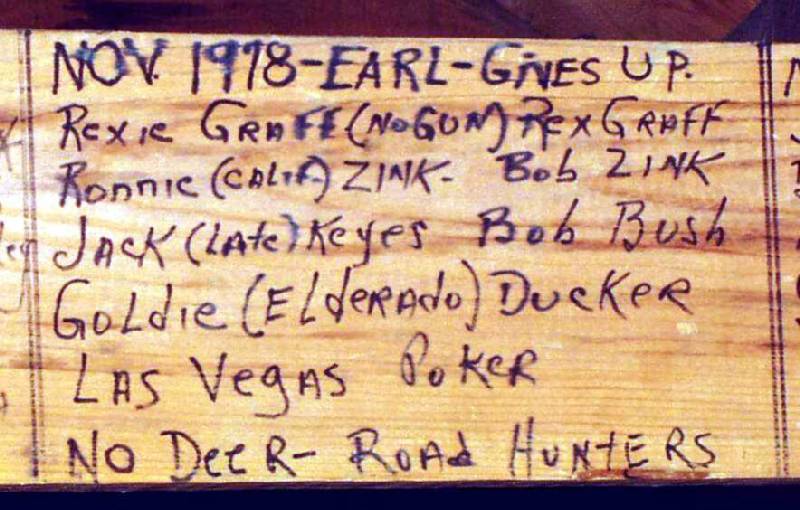 NOV. 1978-EARL-GIVES UP.
Rexie GRAFF (NO GUN) Rex GRAFF
Ronnie (CALIF) ZINK- Bob ZINK
JACK (LAte) Keyes Bob Bush
GoLdie (ELdeRAdo) DucKeR
LAS VegAS PoKeR
NO DeeR- RoAd HUNtERS